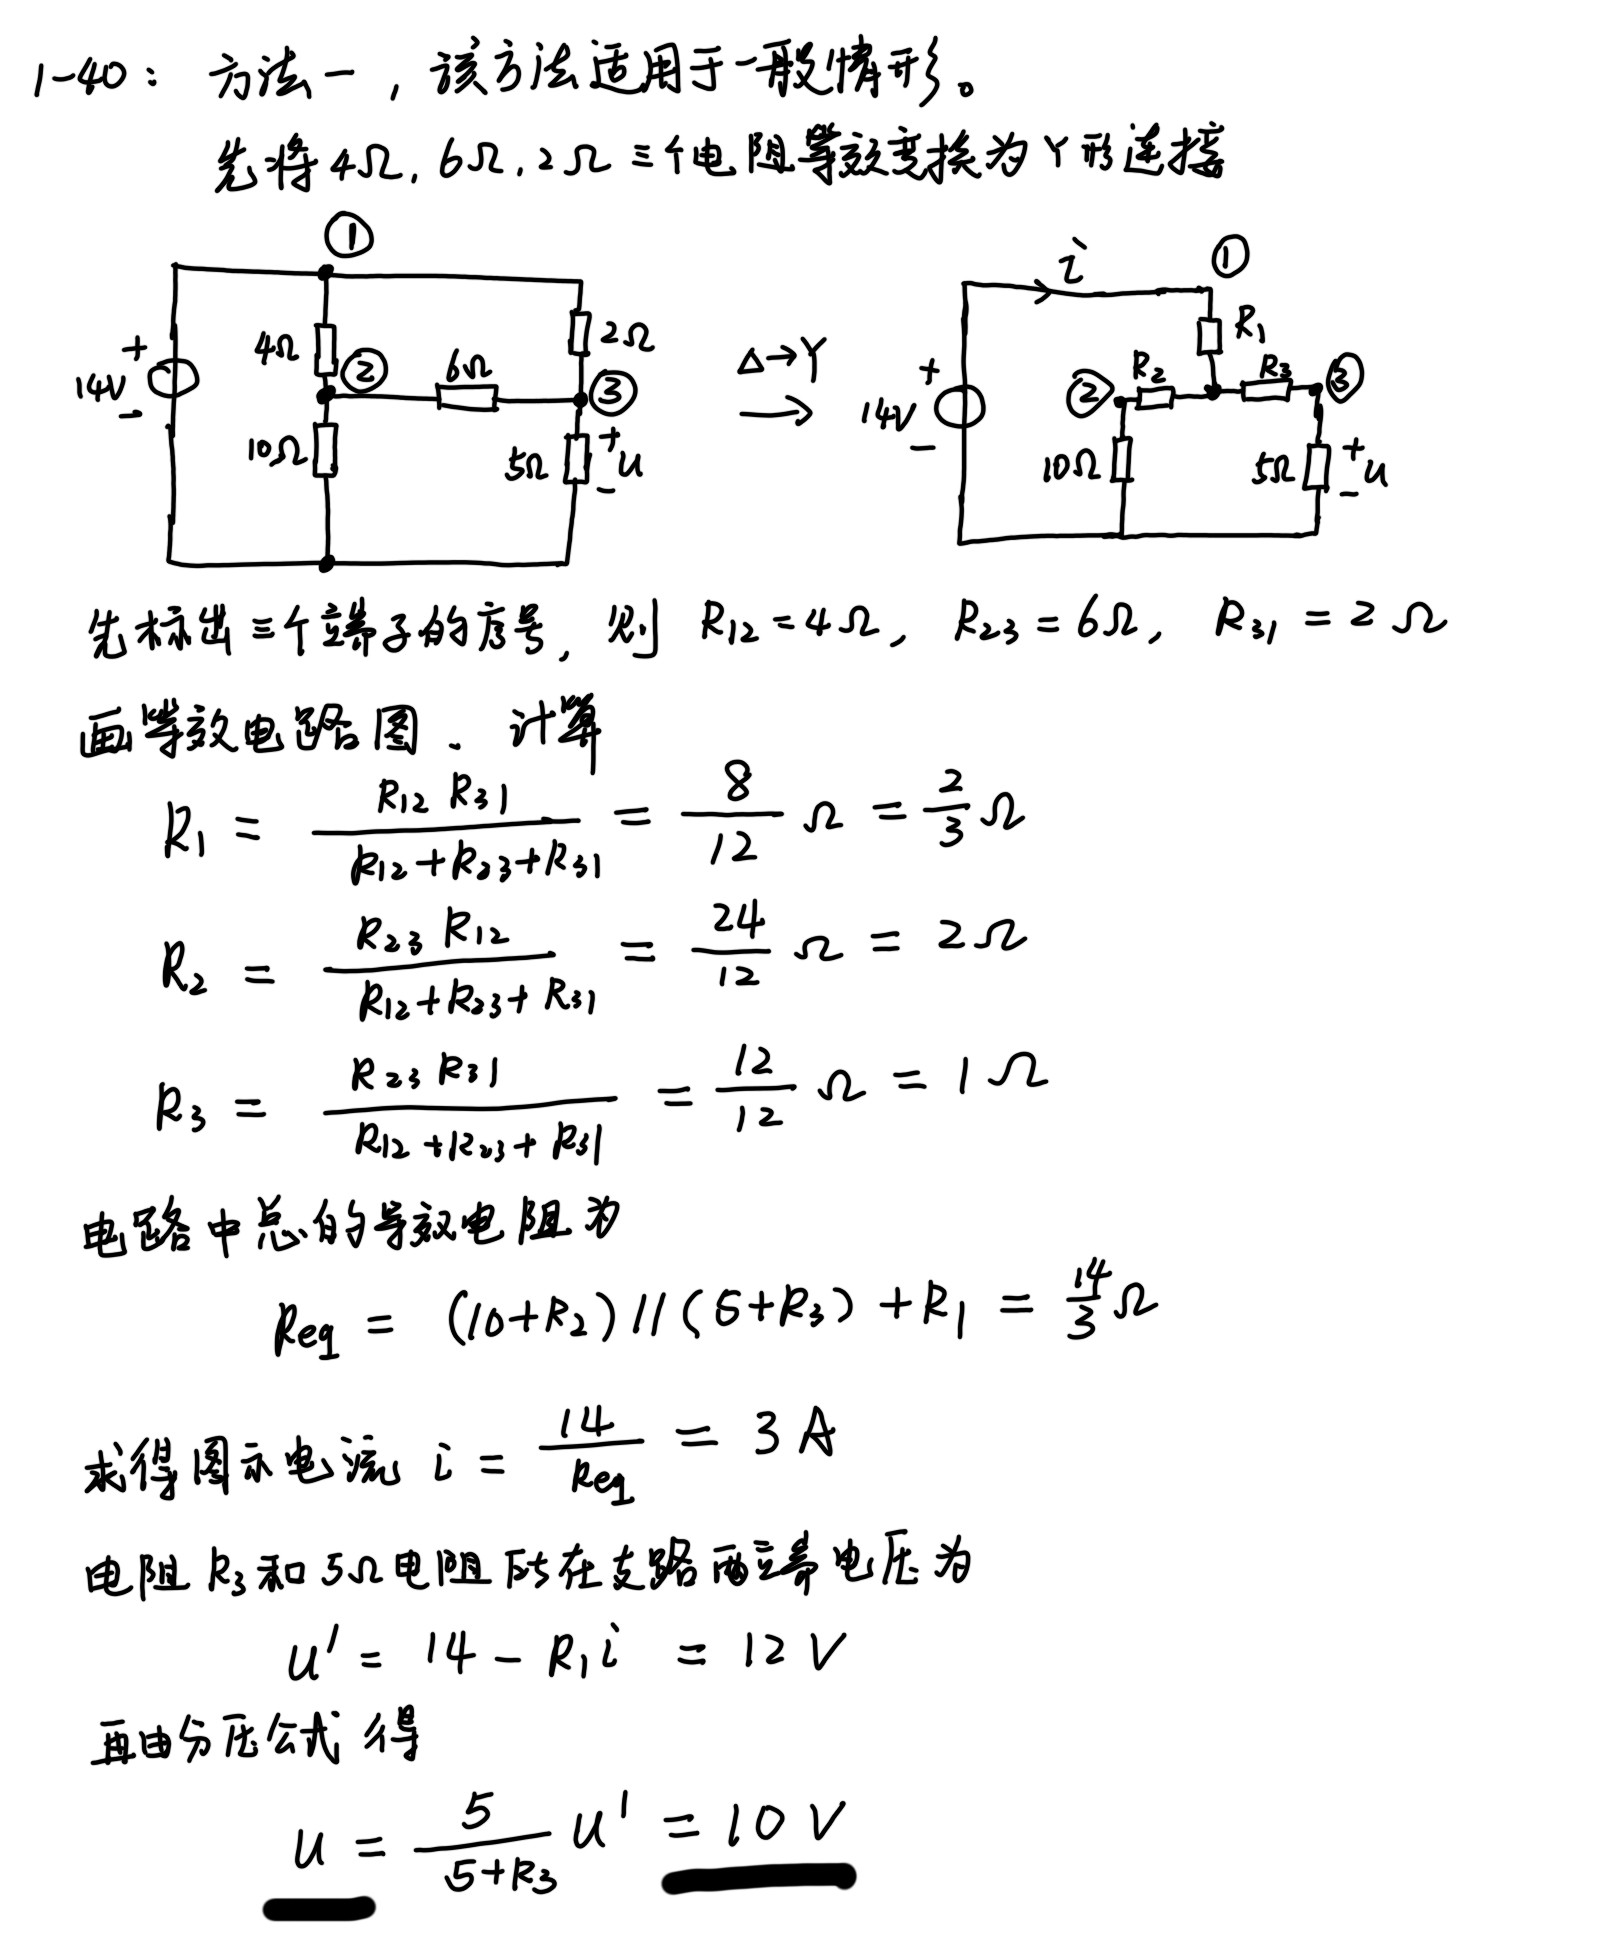 1-40： 方法一，该方法适用于一般情形。
先将4Ω, 6Ω, 2Ω 三个电阻等效变换为Y形连接
① i ①
4Ω 2Ω R₁
+ 14V − ② 6Ω ③ Δ→Y + 14V − ② R₂ R₃ ③
10Ω 5Ω + u − 10Ω 5Ω + u −
先标出三个端子的序号, 则 R₁₂=4Ω, R₂₃=6Ω, R₃₁=2Ω
画等效电路图、计算
R₁ = R₁₂ R₃₁ / (R₁₂+R₂₃+R₃₁) = 8/12 Ω = 2/3 Ω
R₂ = R₂₃ R₁₂ / (R₁₂+R₂₃+R₃₁) = 24/12 Ω = 2Ω
R₃ = R₂₃ R₃₁ / (R₁₂+R₂₃+R₃₁) = 12/12 Ω = 1Ω
电路中总的等效电阻为
Req = (10+R₂)//(5+R₃)+R₁ = 14/3 Ω
求得图示电流 i = 14/Req = 3A
电阻R₃和5Ω电阻所在支路两端电压为
u' = 14 − R₁i = 12V
再由分压公式得
u = 5/(5+R₃) u' = 10V